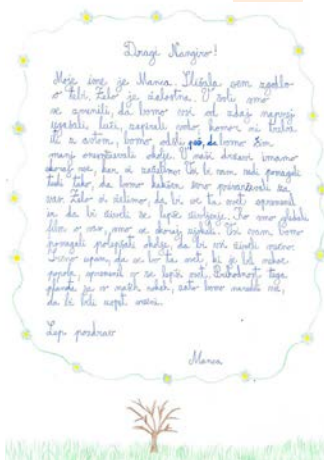 Dragi Nangiro!
Moje ime je Manca. Slišala sem zgodbo
o tebi. Zelo je žalostna. V šoli smo
se zmenili, da bomo vsi od zdaj naprej
ugašali luči, zapirali vodo, komor ni treba
iti z avtom, bomo odšli peš, da bomo čim
manj onesnaževali okolje. V naši državi imamo
skoraj vse, kar si zaželimo. Vsi bi vam radi pomagali
tudi tako, da bomo kakšen evro prišparali za
vas. Zelo si želimo, da bi se ta svet spremenil
in da bi živeli še lepše življenje. Ko smo gledali
film o vas, smo se skoraj zjokali. Vsi vam bomo
pomagali polepšati okolje, da bi vsi živeli srečno.
Srčno upam, da se bo ta svet, ki je bil nekoč
popoln, spremenil v še lepši svet. Prihodnost tega
planeta je v naših rokah, zato bomo naredili vse,
da bi bili uspeli srečni.
Lep pozdrav
Manca